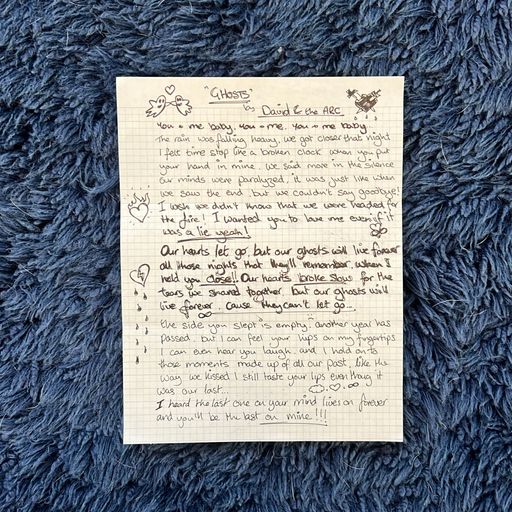 "GHOSTS"
by David & the ARC
You + me baby, You + me, You + me baby
The rain was falling heavy, we got closer that night
I felt time stop like a broken clock when you put
your hand in mine. We said more in the silence
our minds were paralyzed, it was just like when
we saw the end but we couldn't say goodbye!
I wish we didn't know that we were headed for
the fire! I wanted you to love me even if it
was a lie yeah!
Our hearts let go, but our ghosts will live forever
all those nights that they'll remember, when I
held you close!! Our hearts broke slow for the
tears we shared together, but our ghosts will
live forever cause they can't let go...
The side you slept is empty, another year has
passed, but I can feel your lips on my fingertips
I can even hear you laugh, and I hold onto
those moments made up of all our past, like the
way we kissed I still taste your lips even thoug it
was our last...
I heard the last one on your mind lives on forever
and you'll be the last on mine!!!